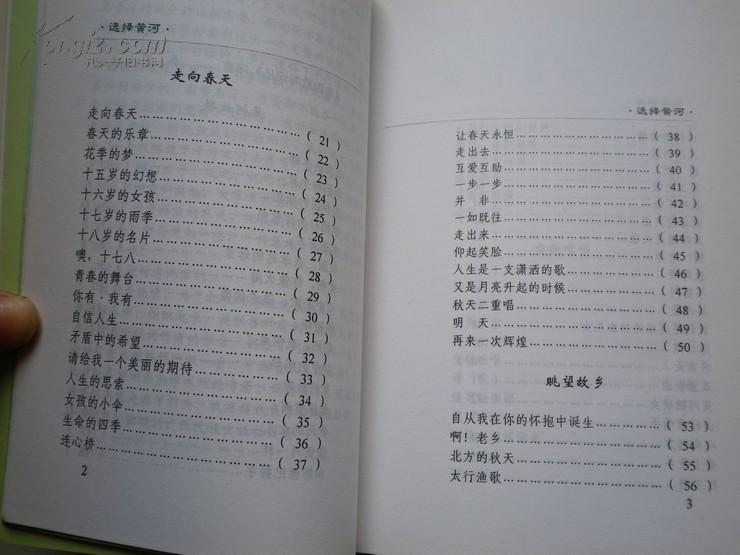 ·选择黄河·
Kongfz.com
孔夫子旧书网
走向春天
走向春天……………………………( 21 )
春天的乐章…………………………( 22 )
花季的梦……………………………( 23 )
十五岁的幻想………………………( 24 )
十六岁的女孩………………………( 25 )
十七岁的雨季………………………( 26 )
十八岁的名片………………………( 27 )
噢，十七八…………………………( 28 )
青春的舞台…………………………( 29 )
你有·我有…………………………( 30 )
自信人生……………………………( 31 )
矛盾中的希望………………………( 32 )
请给我一个美丽的期待……………( 33 )
人生的思索…………………………( 34 )
女孩的小伞…………………………( 35 )
生命的四季…………………………( 36 )
连心桥………………………………( 37 )
2
·选择黄河·
让春天永恒…………………………( 38 )
走出去………………………………( 39 )
互爱互助……………………………( 40 )
一步一步……………………………( 41 )
并　非………………………………( 42 )
一如既往……………………………( 43 )
走出来………………………………( 44 )
仰起笑脸……………………………( 45 )
人生是一支潇洒的歌………………( 46 )
又是月亮升起的时候………………( 47 )
秋天二重唱…………………………( 48 )
明　天………………………………( 49 )
再来一次辉煌………………………( 50 )
眺望故乡
自从我在你的怀抱中诞生…………( 53 )
啊！老乡……………………………( 54 )
北方的秋天…………………………( 55 )
太行渔歌……………………………( 56 )
3